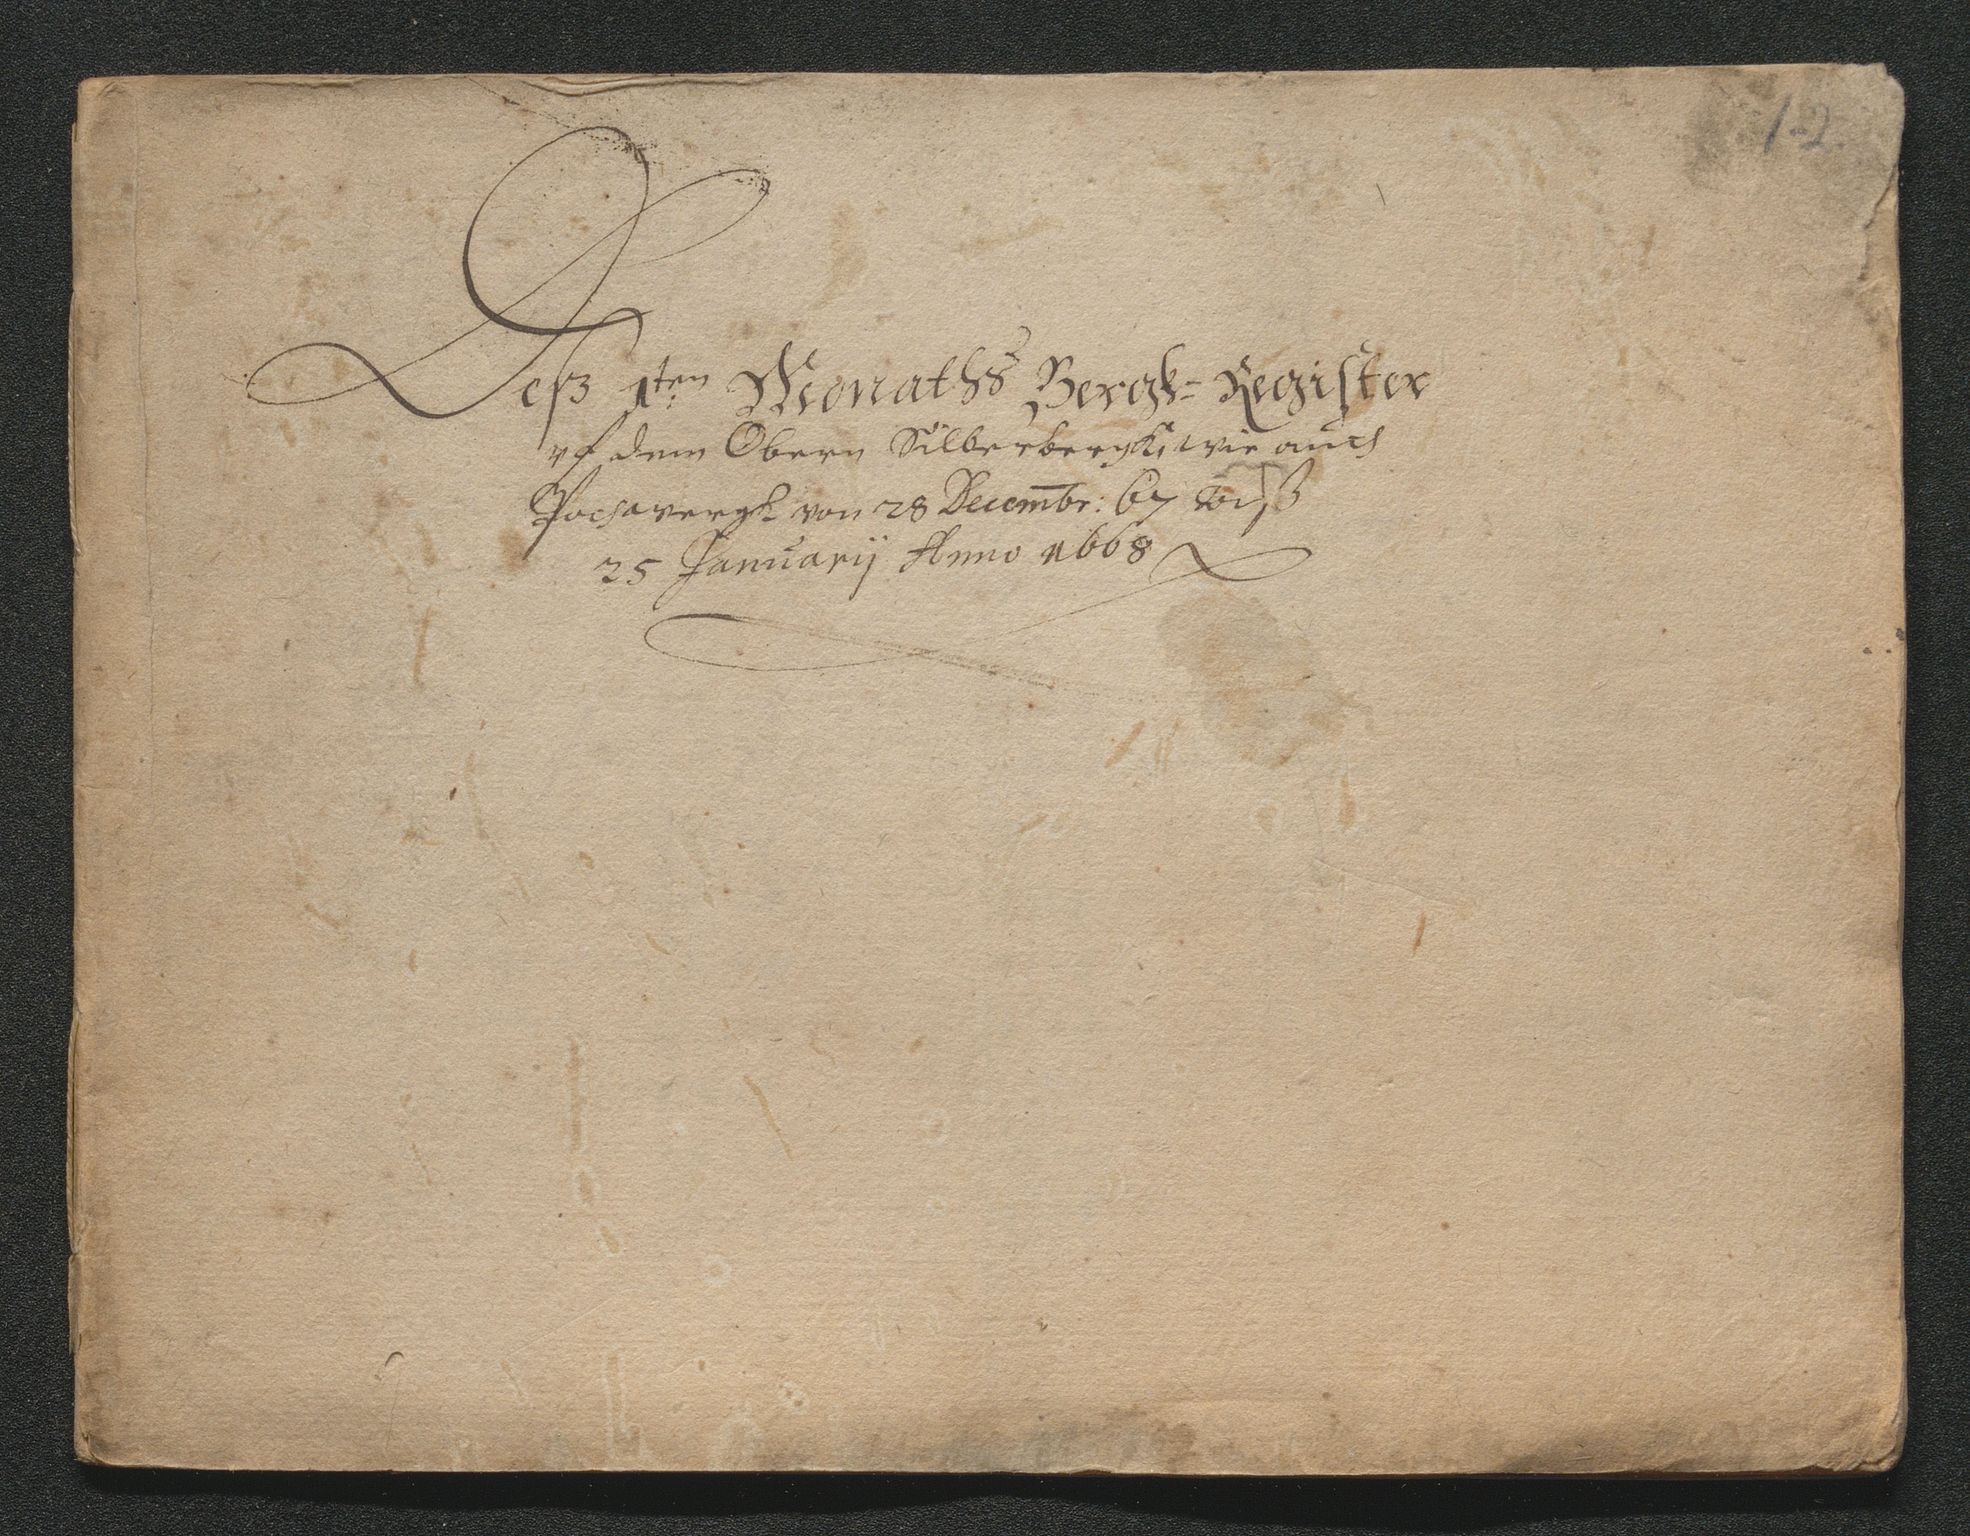 1-2.
Deß 1ten Monaths Bergk-Register
vf dem Obern Silberbergk, wie auch
Pochwergk von 28 Decembr: 67 biß
25 Januarij Anno 1668